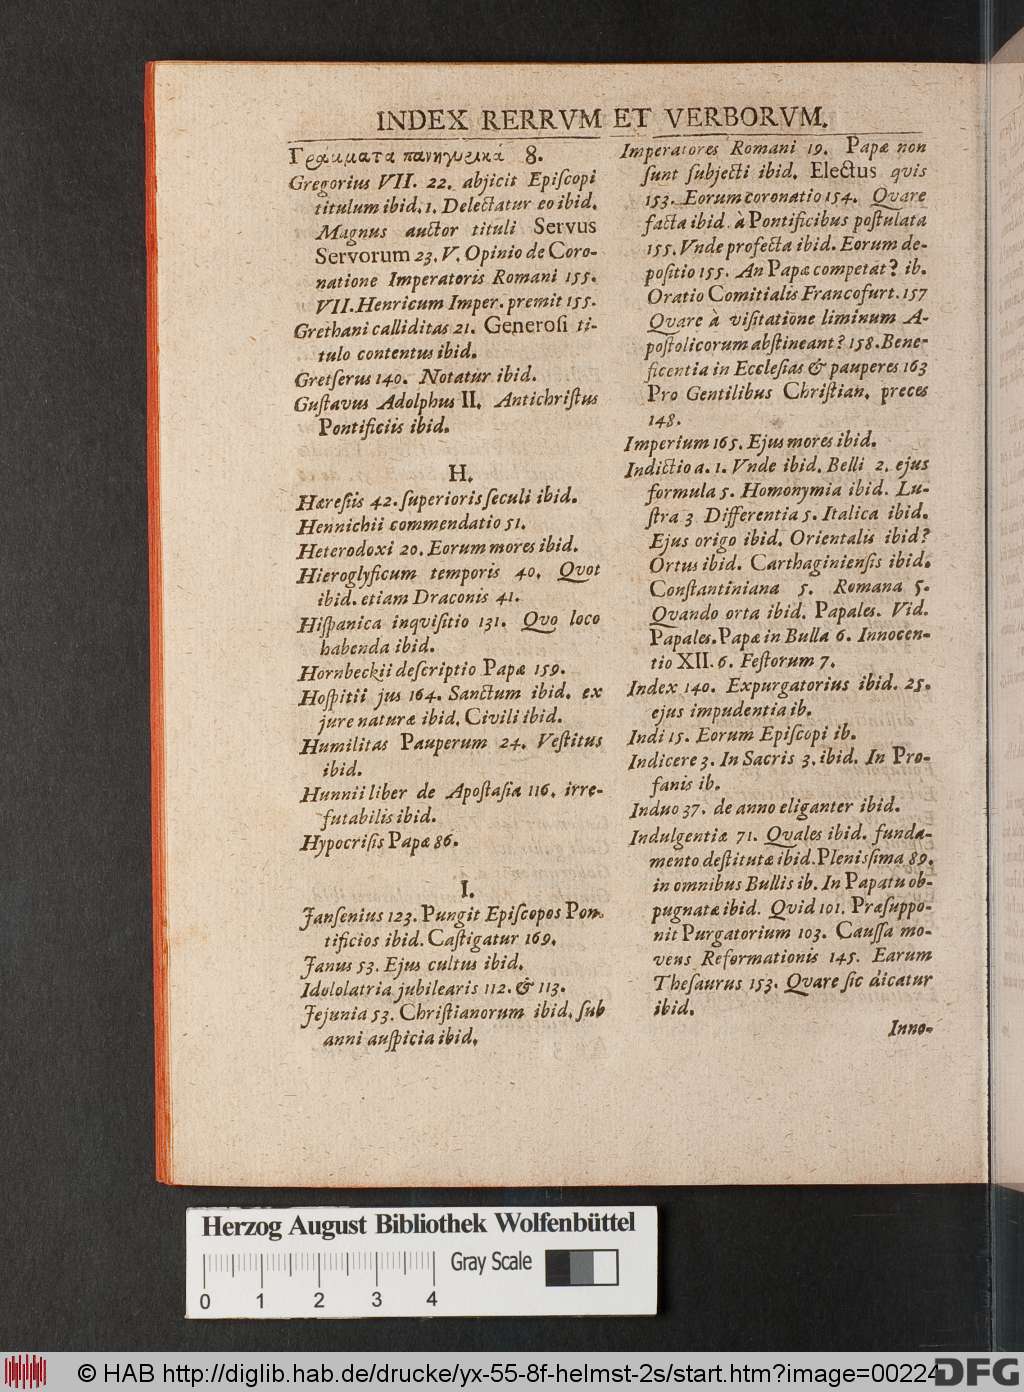 INDEX RERRVM ET VERBORVM.
Γράμματα πανηγυρικά 8.
Gregorius VII. 22. abjicit Epiſcopi
titulum ibid. 1. Delectatur eo ibid.
Magnus auctor tituli Servus
Servorum 23. V. Opinio de Coro-
natione Imperatoris Romani 155.
VII. Henricum Imper. premit 155.
Grethani calliditas 21. Generoſi ti-
tulo contentus ibid.
Gretſerus 140. Notatur ibid.
Guſtavus Adolphus II. Antichriſtus
Pontificiis ibid.
H.
Hæreſiis 42. ſuperioris ſeculi ibid.
Hennichii commendatio 51.
Heterodoxi 20. Eorum mores ibid.
Hieroglyficum temporis 40. Qvot
ibid. etiam Draconis 41.
Hiſpanica inqviſitio 131. Qvo loco
habenda ibid.
Hornbeckii deſcriptio Papæ 159.
Hoſpitii jus 164. Sanctum ibid. ex
jure naturæ ibid. Civili ibid.
Humilitas Pauperum 24. Veſtitus
ibid.
Hunnii liber de Apoſtaſia 116. irre-
futabilis ibid.
Hypocriſis Papæ 86.
I.
Janſenius 123. Pungit Epiſcopos Pon-
tificios ibid. Caſtigatur 169.
Janus 53. Ejus cultus ibid.
Idololatria jubilearis 112. & 113.
Jejunia 53. Chriſtianorum ibid. ſub
anni auſpicia ibid.
Imperatores Romani 19. Papæ non
ſunt ſubjecti ibid. Electus qvis
153. Eorum coronatio 154. Qvare
facta ibid. à Pontificibus poſtulata
155. Vnde profecta ibid. Eorum de-
poſitio 155. An Papæ competat? ib.
Oratio Comitialis Francofurt. 157
Qvare à viſitatione liminum A-
poſtolicorum abſtineant? 158. Bene-
ficentia in Eccleſias & pauperes 163
Pro Gentilibus Chriſtian. preces
148.
Imperium 165. Ejus mores ibid.
Indictio a. 1. Vnde ibid. Belli 2. ejus
formula 5. Homonymia ibid. Lu-
ſtra 3 Differentia 5. Italica ibid.
Ejus origo ibid. Orientalis ibid?
Ortus ibid. Carthaginienſis ibid.
Conſtantiniana 5. Romana 5.
Qvando orta ibid. Papales. Vid.
Papales. Papæ in Bulla 6. Innocen-
tio XII. 6. Feſtorum 7.
Index 140. Expurgatorius ibid. 25.
ejus impudentia ib.
Indi 15. Eorum Epiſcopi ib.
Indicere 3. In Sacris 3. ibid. In Pro-
fanis ib.
Induo 37. de anno eliganter ibid.
Indulgentiæ 71. Qvales ibid. funda-
mento deſtitutæ ibid. Pleniſſima 89.
in omnibus Bullis ib. In Papatu ob-
pugnatæ ibid. Qvid 101. Præſuppo-
nit Purgatorium 103. Cauſſa mo-
vens Reformationis 145. Earum
Theſaurus 153. Qvare ſic dicatur
ibid.
Inno-
Herzog August Bibliothek Wolfenbüttel
Gray Scale
0 1 2 3 4
© HAB http://diglib.hab.de/drucke/yx-55-8f-helmst-2s/start.htm?image=00224
DFG